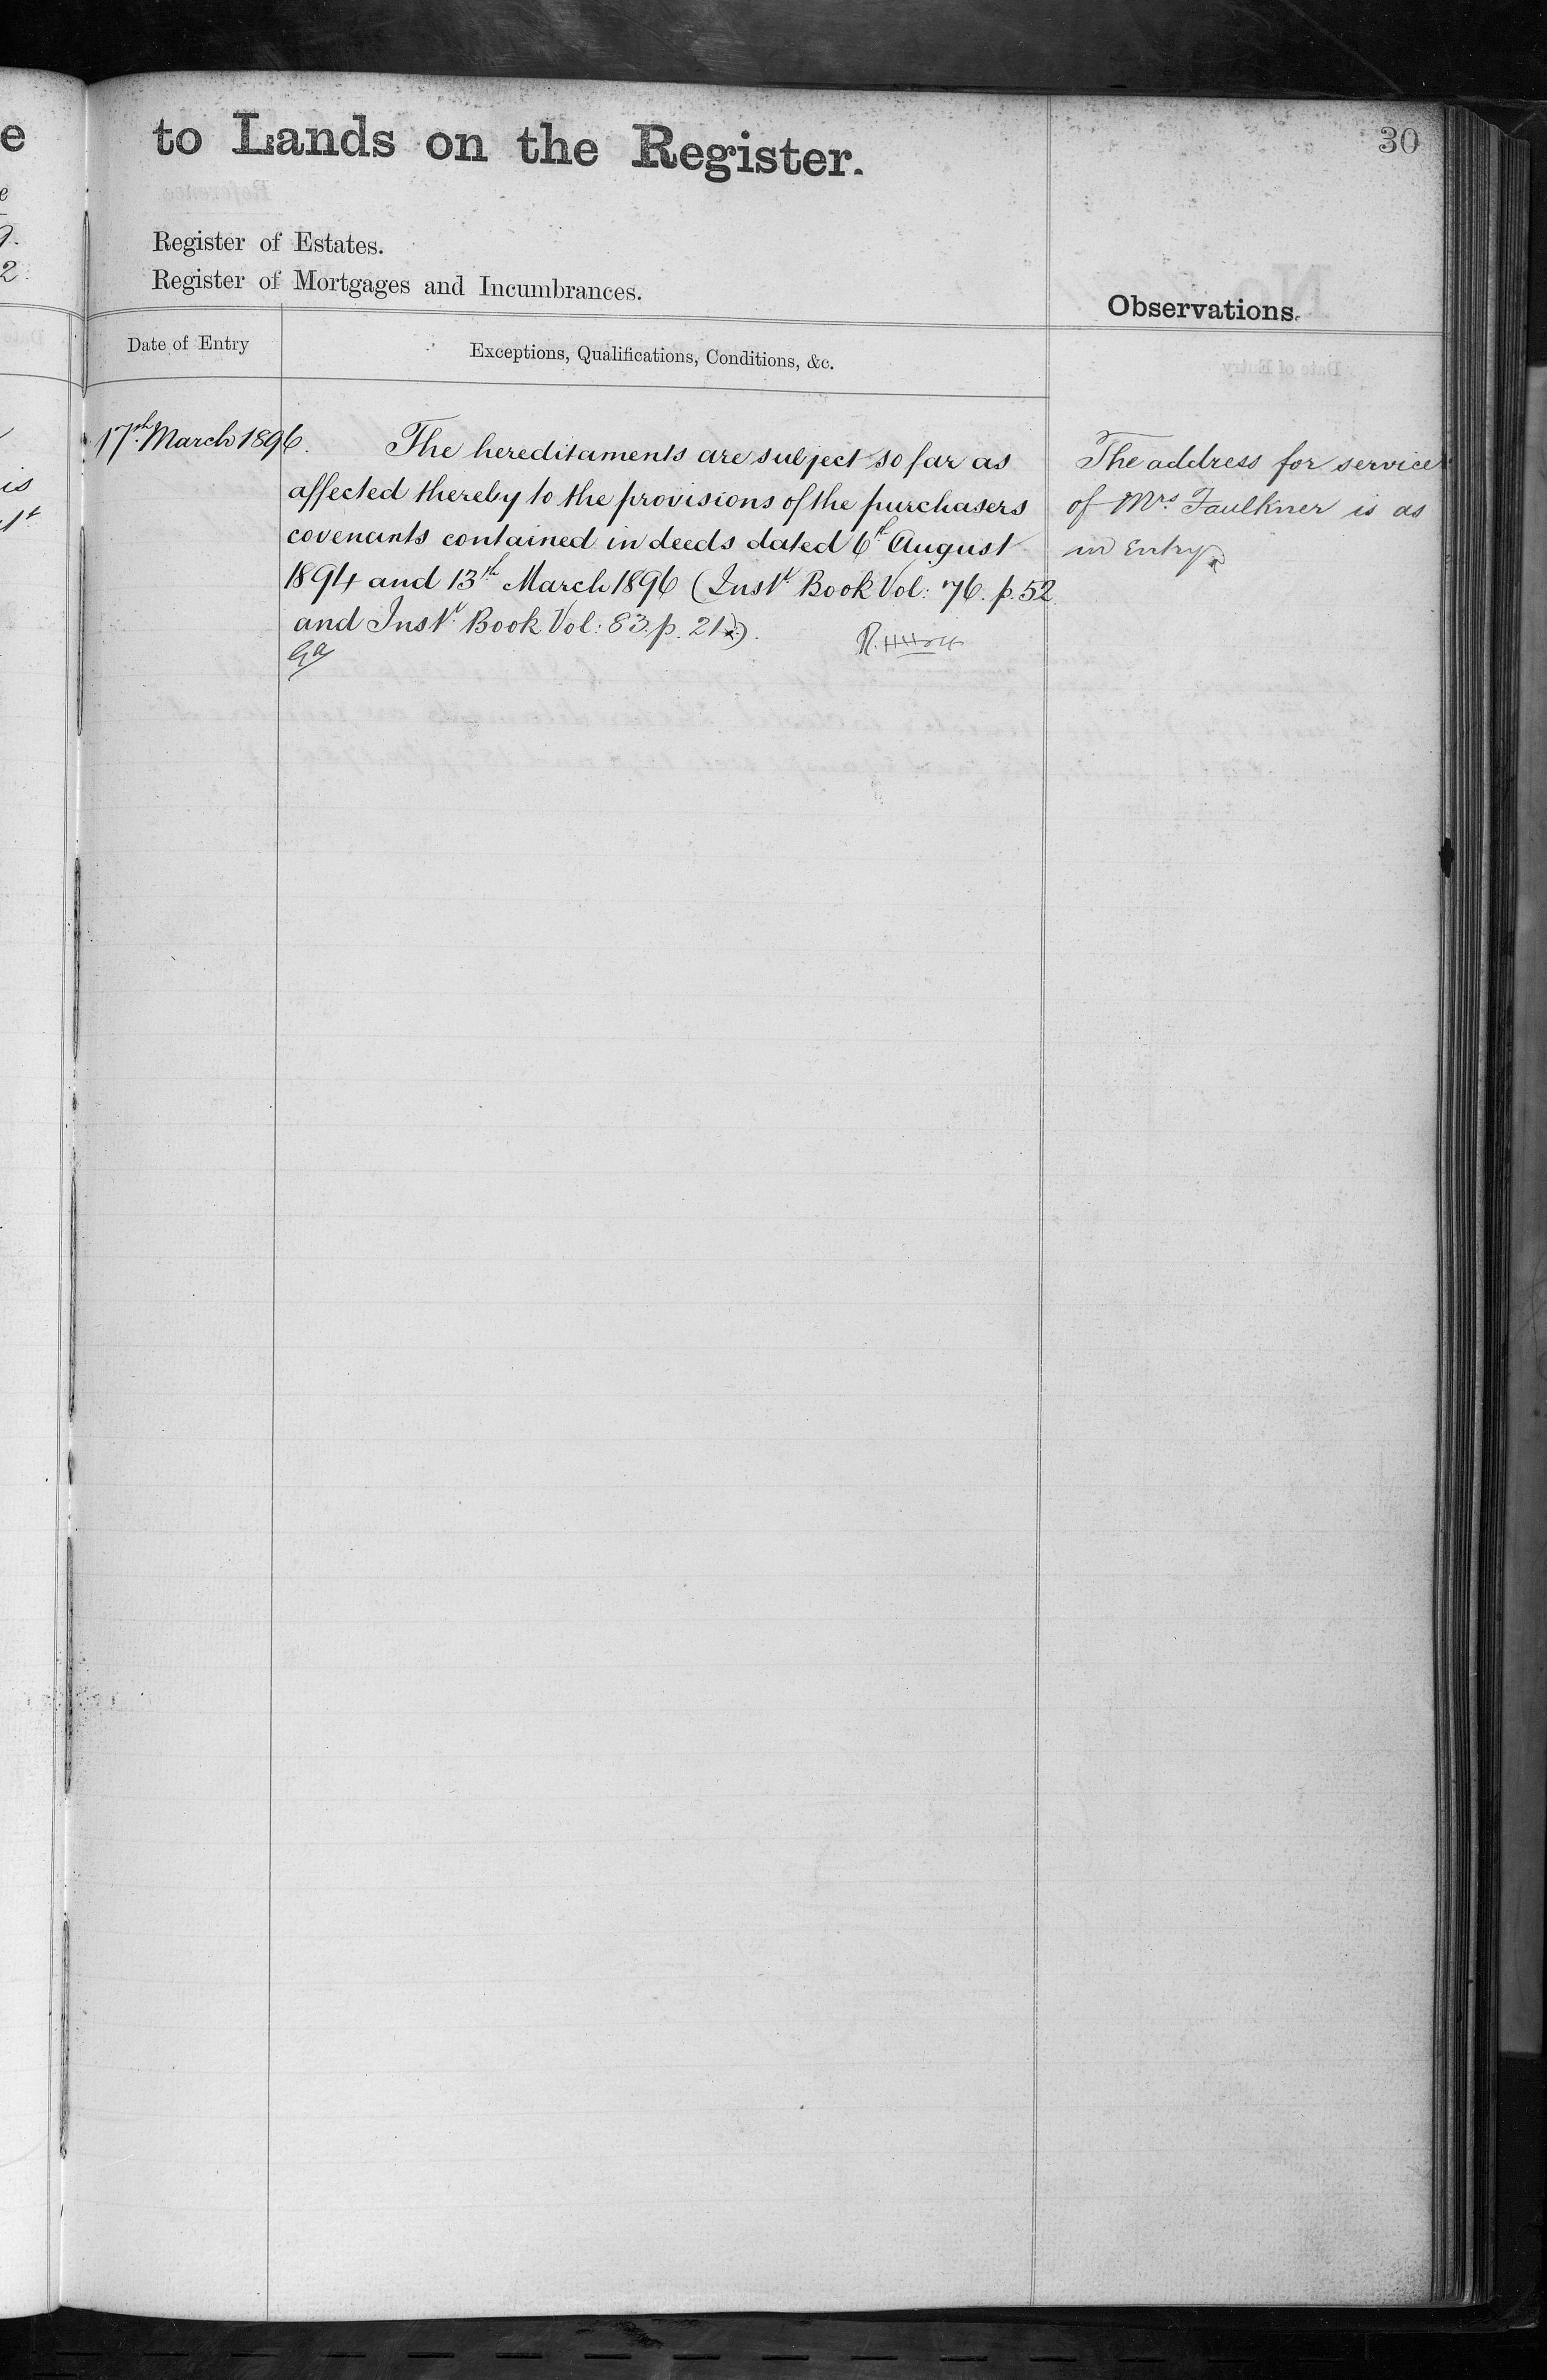 to Lands on the Register.
30
Register of Estates.
Register of Mortgages and Incumbrances.
Observations.
Date of Entry
Exceptions, Qualifications, Conditions, &c.
17th March 1896.
The hereditaments are subject so far as
affected thereby to the provisions of the purchasers
covenants contained in deeds dated 6th August
1894 and 13th March 1896 (Inst. Book Vol: 76. p. 52
and Inst. Book Vol: 83. p. 21).
The address for service
of Mrs. Faulkner is as
in Entry